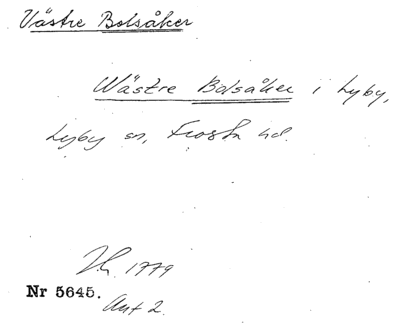 Västre Bolsåker
Wästre Bolsåker i Lyby,
Lyby sn, Frosta hd.
1779
Nr 5645.
Akt 2.